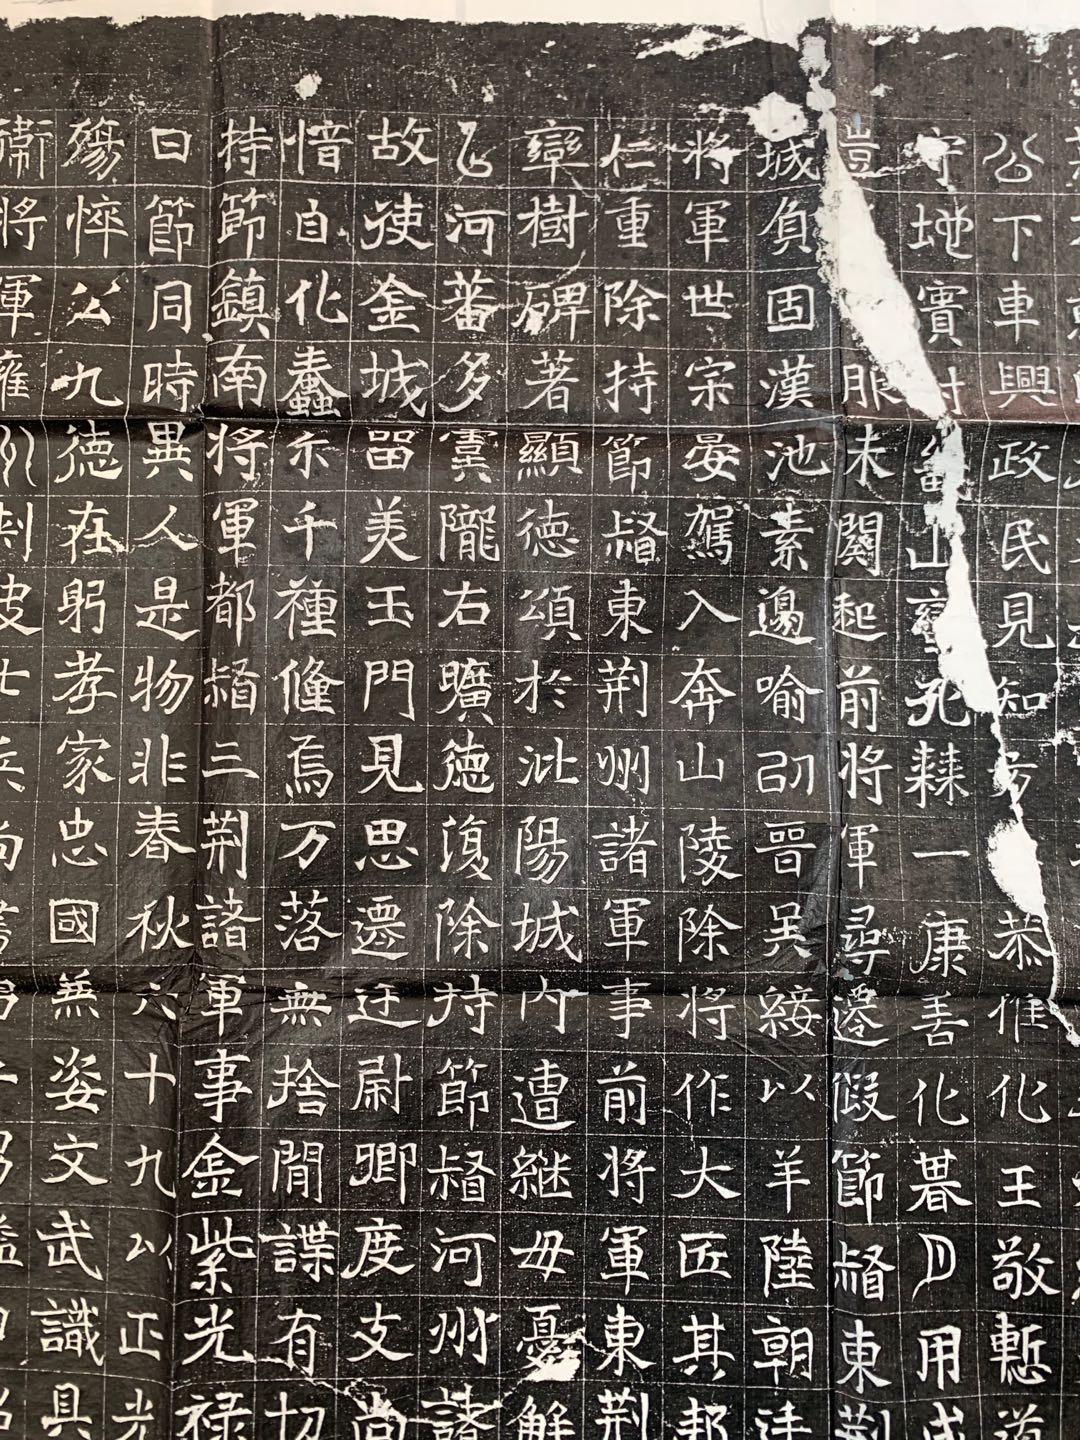 公下車興政民見知方恭惟化王敬慙道
守地實山孔棘一康善化朞月用成
豈服未闋起前將軍尋遷假節督東荆
城負固漢池素邊喻劭晉吴綏以羊陸朝
將軍世宗晏駕入奔山陵除將作大匠其邦
仁重除持節督東荆州諸軍事前將軍東荆
臺樹碑著顯德頌於沘陽城內遭継母憂解
乙河蕃多虞隴右曠德復除持節督河州諸
故使金城留美玉門見思遷廷尉卿度支尚
愔自化蠢尒千種倏焉万落無捨閒諜有切
持節鎮南將軍都督三荆諸軍事金紫光禄
曰節同時異人是物非春秋六十九以正光
殤悴公九德在躬孝家忠國無姿文武識具
衛將軍雍州刾史七兵尚書男